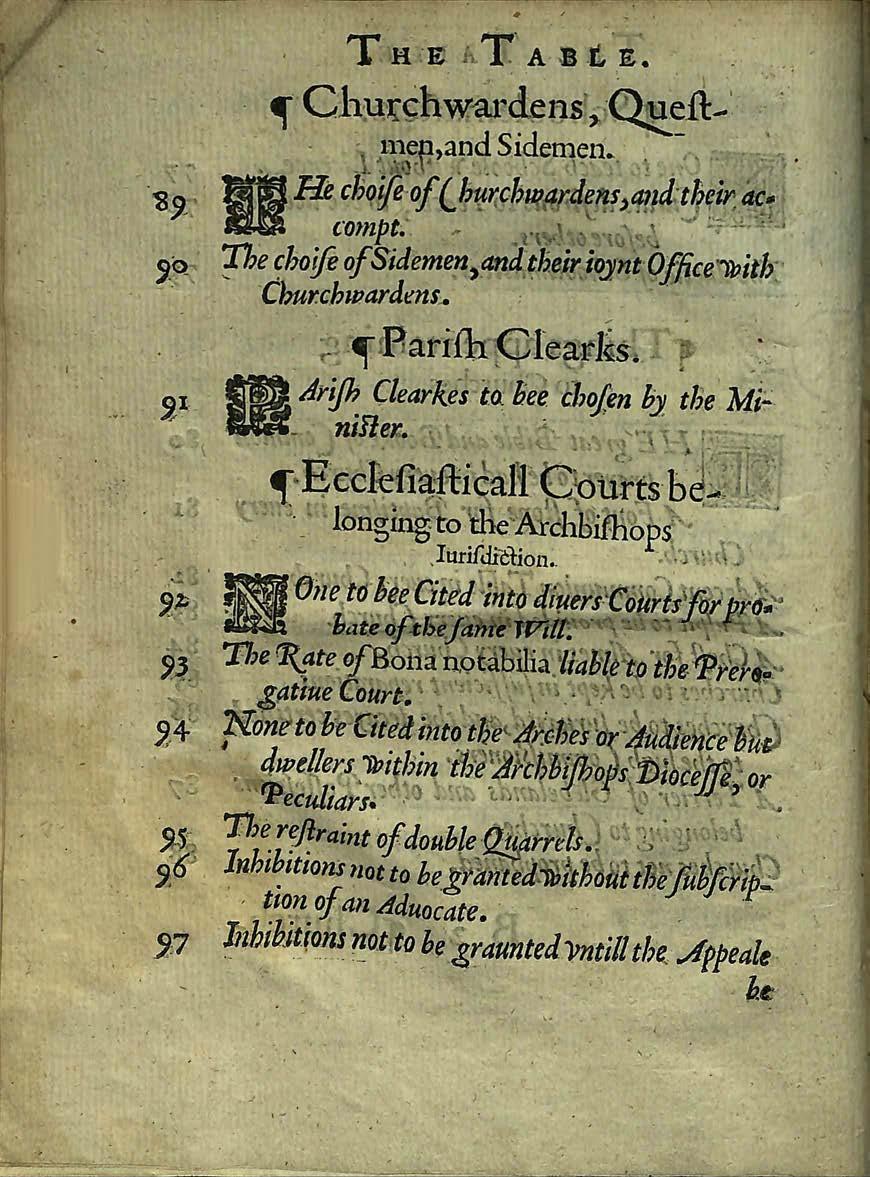 THE TABLE.
¶ Churchwardens, Queſt-
men, and Sidemen.
89 THe choiſe of Churchwardens, and their ac-
compt.
90 The choiſe of Sidemen, and their ioynt Office with
Churchwardens.
¶ Pariſh Clearks.
91 PAriſh Clearkes to bee choſen by the Mi-
niſter.
¶ Eccleſiaſticall Courts be-
longing to the Archbiſhops
Iuriſdiction.
92 NOne to bee Cited into diuers Courts for pro-
bate of the ſame Will.
93 The Rate of Bona notabilia liable to the Prero-
gatiue Court.
94 None to be Cited into the Arches or Audience but
dwellers within the Archbiſhops Dioceſſe, or
Peculiars.
95 The reſtraint of double Quarrels.
96 Inhibitions not to be granted without the ſubſcrip-
tion of an Aduocate.
97 Inhibitions not to be graunted vntill the Appeale
be